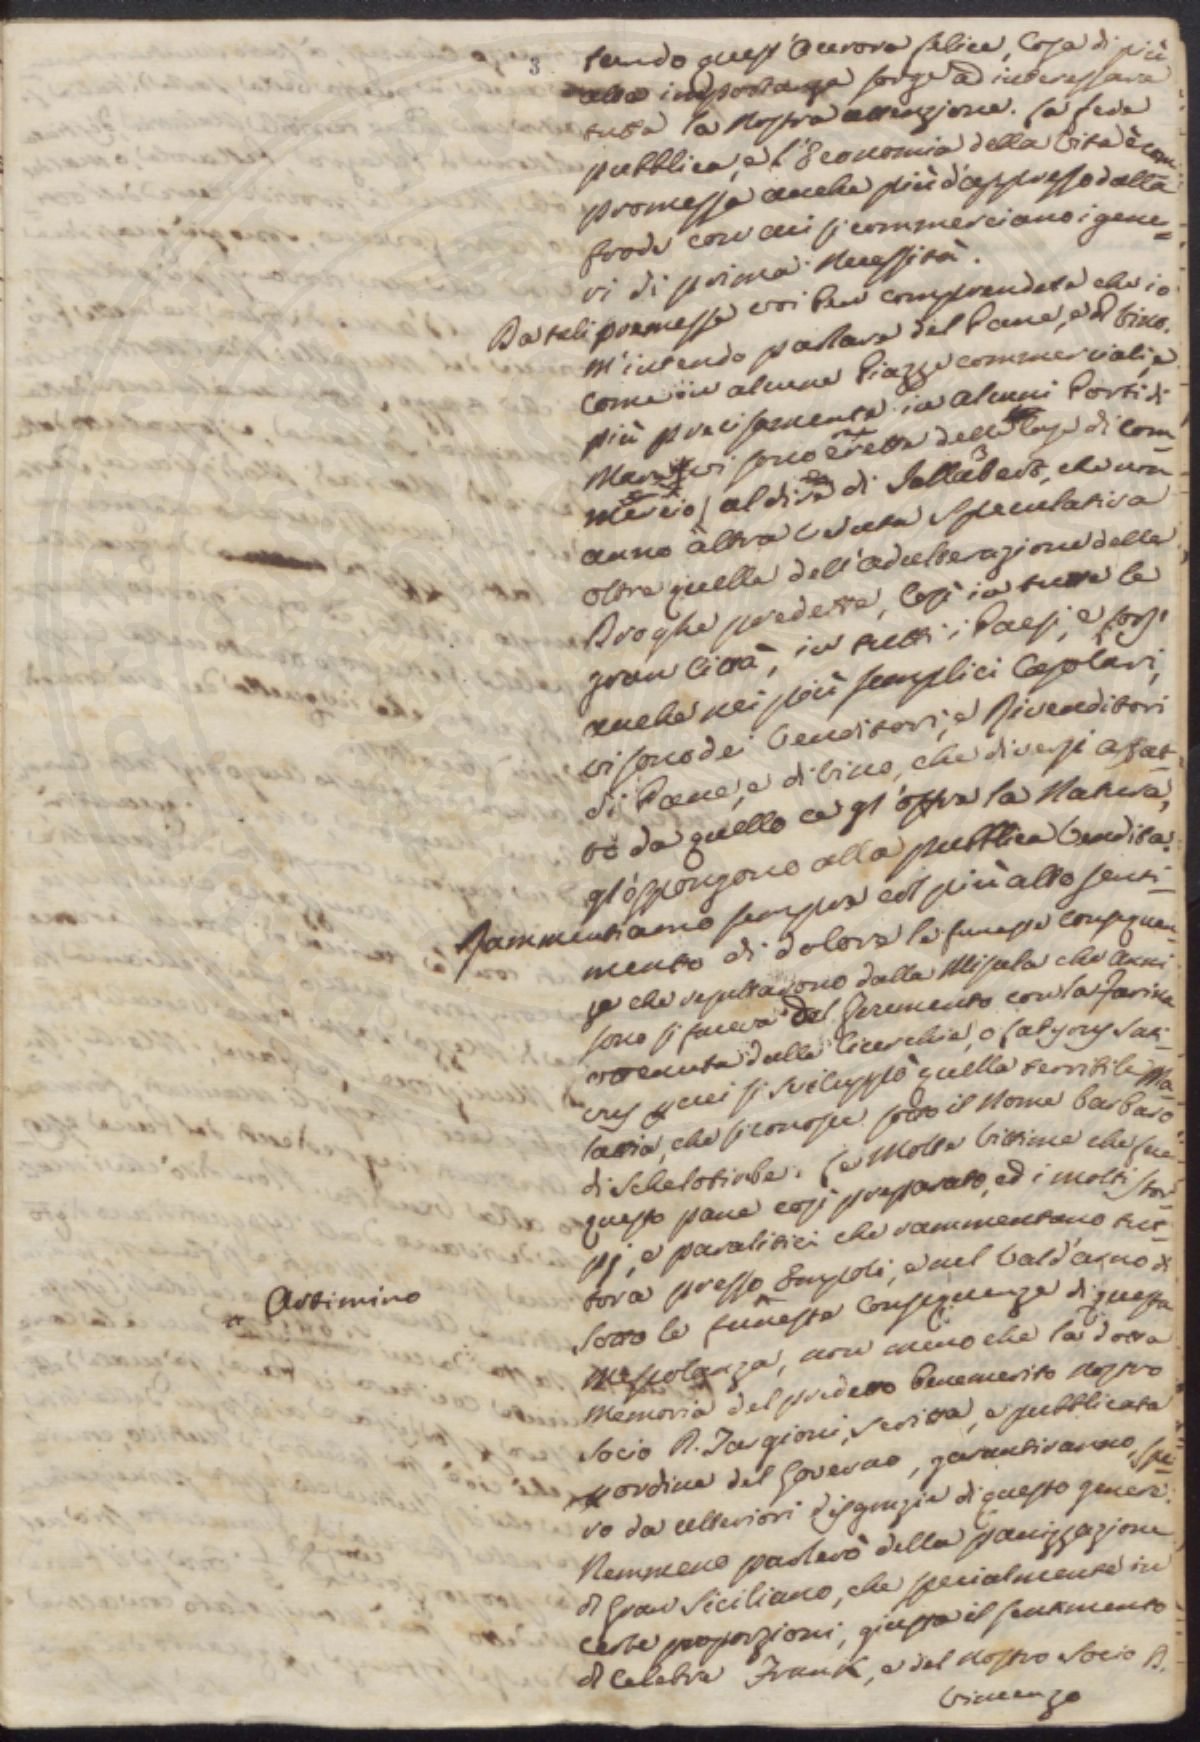 3
tando quest'Aurora felice, Cosa di più
alta importanza sorge ad interessare
tutta la Nostra attenzione. La fede
pubblica, e l'Economia della Vita è com-
promessa anche più d'appresso dalla
frode con cui si commerciano i gene=
ri di prima Necessità.
Da tali premesse voi ben comprendete che io
m'intendo parlare del Pane, e di Vino.
Come in alcune Piazze commerciali, e
più precisamente in alcuni Porti di
Mare vi sono erette delle Case di Com=
mercio (al dire di Jallabert, che non
anno altra veduta speculativa
oltre quella dell'adulterazione delle
Droghe predette, Così in tutte le
gran Città, in tutti i Paesi, e forse
anche nei più semplici Casolari,
vi sono dei Venditori, e Rivenditori
di Pane, e di Vino, che diversi affat=
to da quello ce gl'offre la Natura,
gl'espongono alla pubblica Vendita.
Rammentiamo sempre col più alto senti=
mento di dolore le funeste conseguen=
ze che resultarono dalla Miscela che anni
sono si faceva del Frumento con la Farina
ottenuta dalle Cicerchie, o Latyrus Sati=
vus per cui si sviluppò quella terribile Ma=
lattia, che si conosce sotto il Nome barbaro
di Schelotirbe. Le Molte Vittime che fece
questo pane così preparato, ed i molti stor=
pj, e paralitici che rammentano tut=
tora presso Empoli, e nel Vald'arno di
Artimino
sotto le funeste Conseguenze di questa
Mescolanza, non meno che la dotta
Memoria del predetto benemerito Nostro
Socio D. Targioni, scritta, e pubblicata
per ordine del Governo, garantiranno, spe=
ro da ulteriori disgrazie di questo genere.
Nemmeno parlerò della panizzazione
di Gran Siciliano, che specialmente in
certe proporzioni, giusta il sentimento
di Celebre Frank, e del Nostro Socio D.
Vincenzo